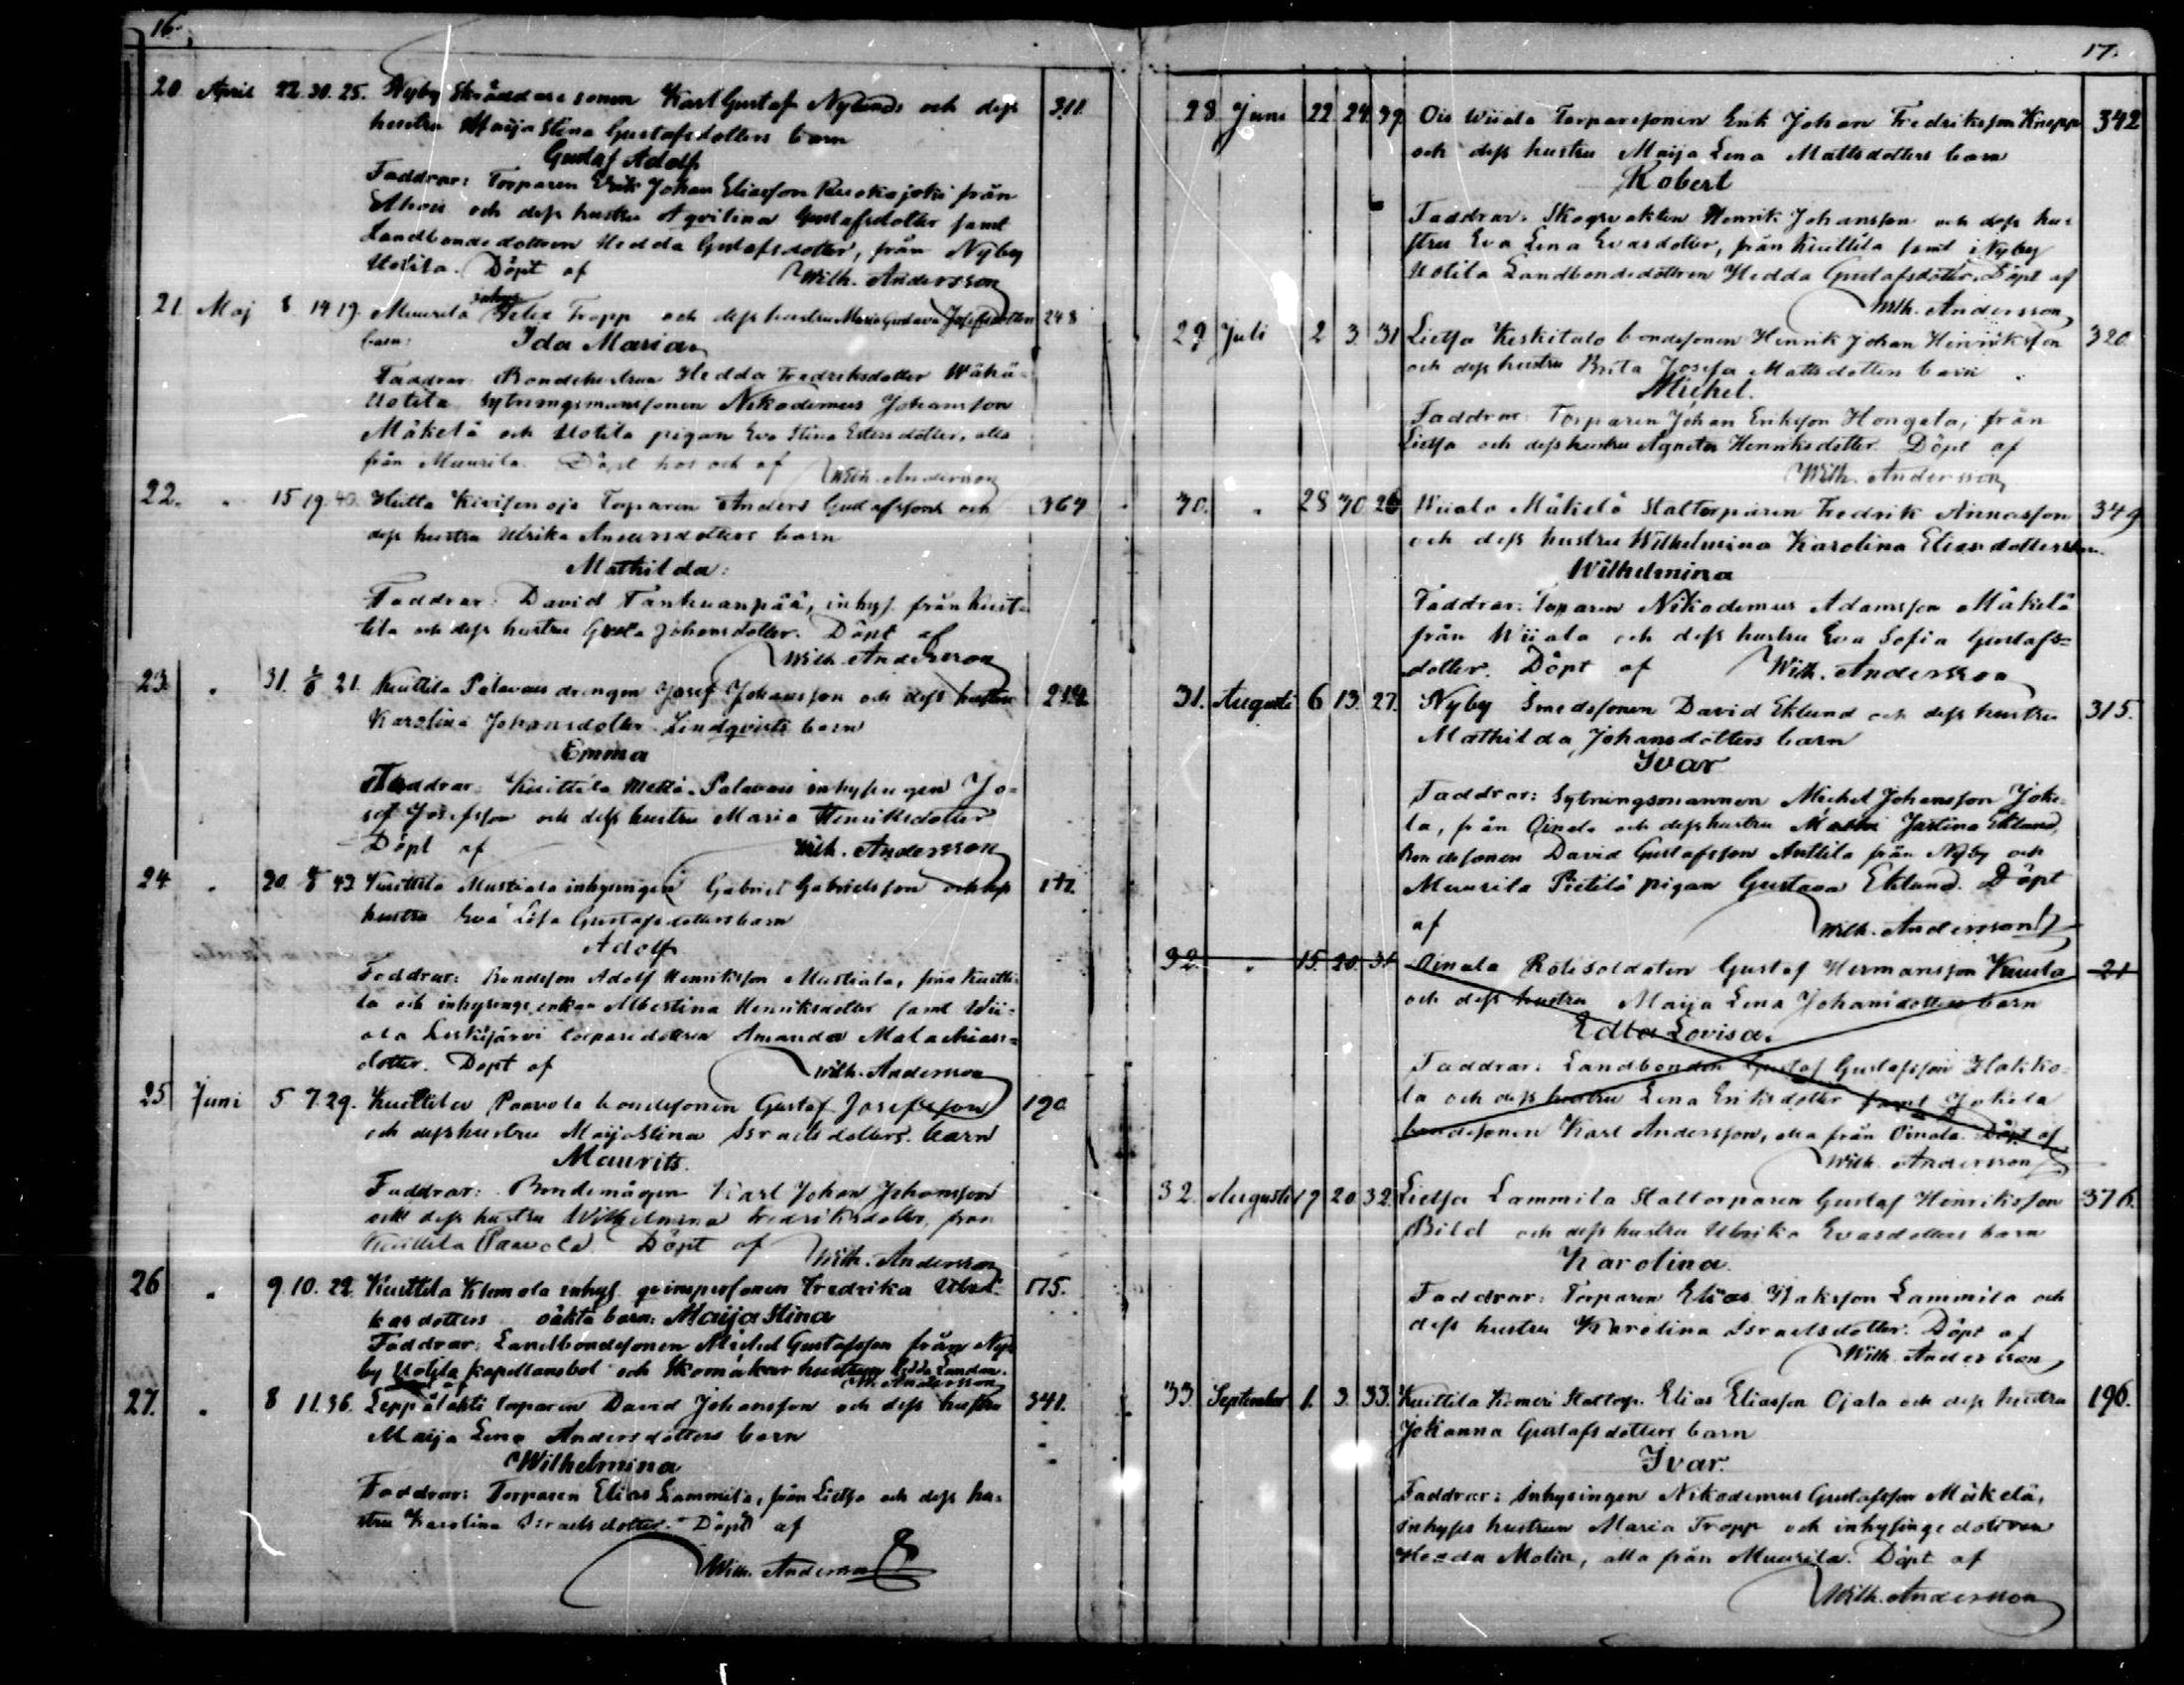 16.
20 April 22. 30. 25. Nyby Skräddare sonen Karl Gustaf Nylunds och dess 311.
hustru Maija Stina Gustafsdotters barn
Gustaf Adolf
Faddrar: Torparen Erik Johan Eliasson Ruokojoki från
och dess hustru Agvilina Gustafsdotter samt
Landbondedottren Hedda Gustafsdotter, från Nyby
Uotila. Döpt af Wilh. Andersson
21. Maj 8. 14 19. Muurila Felix Tropp och dess hustru Maria Gustava Josefsdotters 248
barn: Ida Maria
Faddrar: Bondehustrun Hedda Fredriksdotter Wähä-
Uotila Sytningsmanssonen Nikodemus Johansson
Mäkelä och Uotila pigan Eva Stina Estersdotter, alla
från Muurila. Döpt hos och af Wilh. Andersson
22. " 15 19. 40. Torparen Anders Gustafssons och 369
dess hustru Ulrika Andersdotters barn
Mathilda:
Faddrar: David Tankuanpää, inhys. från Kuit-
tila och dess hustru Johansdotter. Döpt af
Wilh. Andersson
23. " 31. 21. Kuittila Palavais drengen Josef Johansson och dess hustru 214.
Karolina Johansdotter Lindqvists barn
Emma
Faddrar: Kuittila Palavais inhysingen Jo-
sef Josefsson och dess hustru Maria Henriksdotter
Döpt af Wilh. Andersson
24 " 30. 43. Kuittila Mustiala inhysingen Gabriel Gabrielsson och dess
hustru Eva Lisa Gustafsdotters barn
Adolf
Faddrar: Bondeson Adolf Henriksson Mustiala, från Kuitti-
la och inhysings enkan Albertina Henriksdotter samt Wii-
ala torparedottren Amanda Malachias-
dotter. Döpt af Wilh. Andersson
25 Juni 5 7. 29. Kuittila Paavola bondesonen Gustaf Josefsson 190.
och dess hustru Maija Stina Israelsdotters barn
Maurits.
Faddrar: Bondemågen Karl Johan Johansson
och dess hustru Wilhelmina Fredriksdotter, från
Kuittila Paavola. Döpt af Wilh. Andersson
26 " 9 10. 22 Kuittila Klemola inhys. qvinspersonen Fredrika Ulri- 175.
kasdotters oäkta barn: Maija Stina
Faddrar: Landbondesonen Michel Gustafsson från Ny-
by Uotila kapellansbol och Skomakar hustrun Hedda
W. Andersson
27. " 8 11. 36. Leppälahti torparen David Johansson och dess hustru 341.
Maija Lena Andersdotters barn
Wilhelmina
Faddrar: Torparen Elias Lammila, från Lietsa och dess hu-
stru Karolina Israelsdotter. Döpt af
Wilh. Andersson
17.
28. Juni 22 24. 39. Ois Wiiala Torparesonen Erik Johan Fredriksson Knepp 342
och dess hustru Maija Lena Mattsdotters barn
Robert
Faddrar: Skogsvakten Henrik Johansson och dess hu-
stru Eva Lena Evasdotter, från Kuittila samt i Nyby
Uotila Landbondedottren Hedda Gustafsdotter. Döpt af
Wilh. Andersson
29 Juli 2 3. 31 Lietsa Keskitalo bondesonen Henrik Johan Henriksson 320
och dess hustru Brita Josefa Mattsdotters barn
Michel.
Faddrar: Torparen Johan Eriksson Hongela, från
Lietsa och dess hustru Agneta Henriksdotter. Döpt af
Wilh. Andersson
30. " 28 30 26 Wiiala Mäkelä Staltorparen Fredrik Annasson 349
och dess hustru Wilhelmina Karolina Eliasdotters
Wilhelmina
Faddrar: Torparen Nikodemus Adamsson Mäkelä
från Wiiala och dess hustru Eva Sofia Gustafs-
dotter. Döpt af Wilh. Andersson
31. Augusti 6 13. 27. Nyby Smedssonen David Eklund och dess hustru 315.
Mathilda Johansdotters barn
Ivar
Faddrar: Sytningsmannen Michel Johansson Joke-
la, från Oinala och dess hustru Justina Eklund,
Bondesonen David Gustafsson Anttila från Nyby och
Muurila Pietilä pigan Gustava Eklund. Döpt
af Wilh. Andersson
32. " 15. 20. 31 Oinala Rotesoldaten Gustaf Hermansson Kuula 21
och dess hustru Maija Lena Johansdotters barn
Edla Lovisa.
Faddrar: Landbonden Gustaf Gustafsson Hakko-
la och dess hustru Lena Eriksdotter samt Jokela
bondesonen Karl Andersson, alla från Oinala. Döpt af
Wilh. Andersson
32. Augusti 17 20. 32. Lietsa Lammila Staltorparen Gustaf Henriksson 376.
Bild och dess hustru Ulrika Evasdotters barn
Karolina
Faddrar: Torparen Elias Isaksson Lammila och
dess hustru Karolina Israelsdotter. Döpt af
Wilh. Andersson
33. September 1. 3. 33. Kuittila Komeri Staltorp. Elias Eliasson Ojala och dess hustru 196.
Johanna Gustafsdotters barn
Ivar.
Faddrar: Inhysingen Nikodemus Gustafsson Mäkelä,
inhyses hustrun Maria Tropp och inhysinge dottren
Hedda Molin, alla från Muurila. Döpt af
Wilh. Andersson